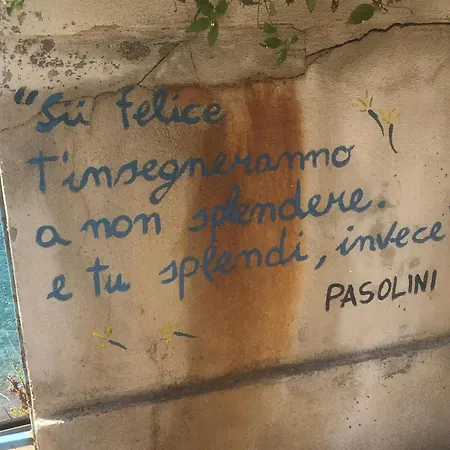 "Sii felice
t'insegneranno
a non splendere.
e tu splendi, invece"
PASOLINI